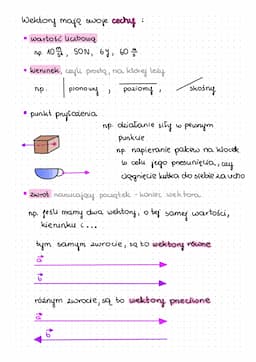 Wektory mają swoje cechy :
• wartość liczbową
np. 10 m/s², 50N, 6y, 60 m/s
• kierunek, czyli prostą, na której leży
np. pionowy , poziomy , skośny
• punkt przyłożenia
np. działanie siły w pewnym
punkcie
np. napieranie palcem na klocek
w celu jego przesunięcia, czy
ciągnięcie kubka do siebie za ucho
• zwrot nanoszący początek - koniec wektora
np. jeśli mamy dwa wektory, o tej samej wartości,
kierunku i ...
tym samym zwrocie, są to wektory równe
a
b
różnym zwrocie, są to wektory przeciwne
a
b